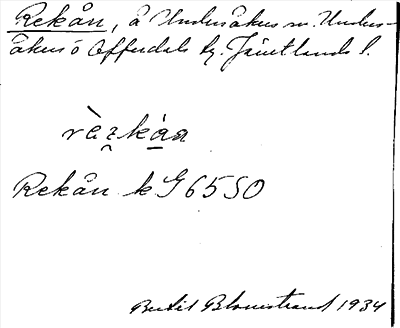 Rekån, å Undersåkers sn. Unders-
åkers o Offerdals tg. Jämtlands l.
rèzkåa
Rekån k G 65 SO
Bertil Blomstrand 1934